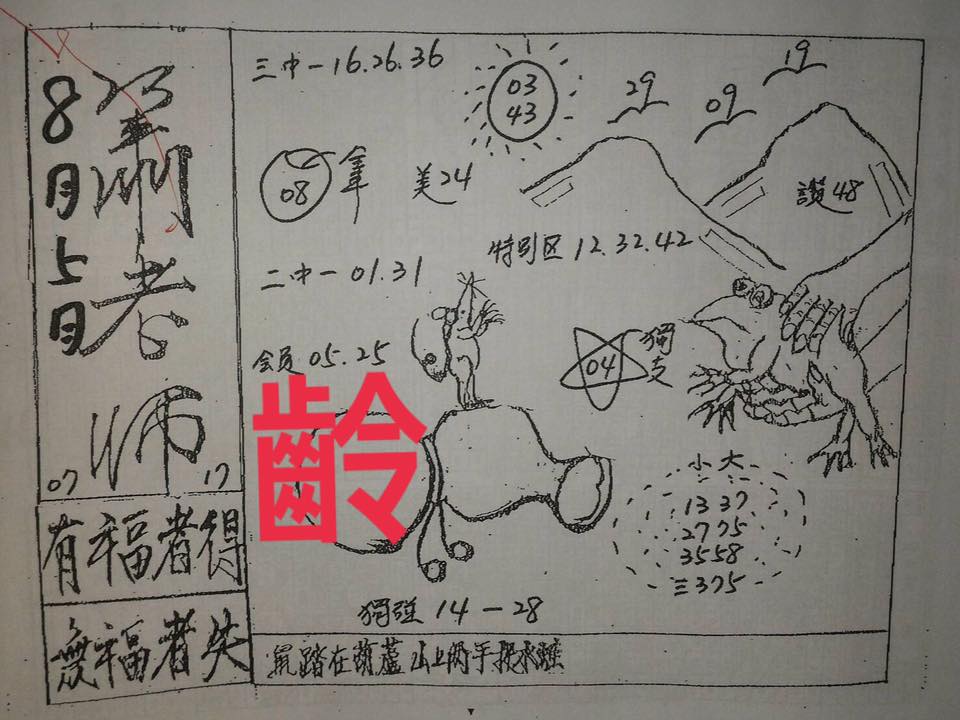 8月5日
老师
07 17
有福者得
無福者失
三中一16.26.36
03
43
29
09
19
08
美24
讚48
特别区12.32.42
二中一01.31
会员05.25
04
獨支
齡
小大
13 37
27 75
35 58
三375
獨強14-28
鼠踏在葫蘆山上两手